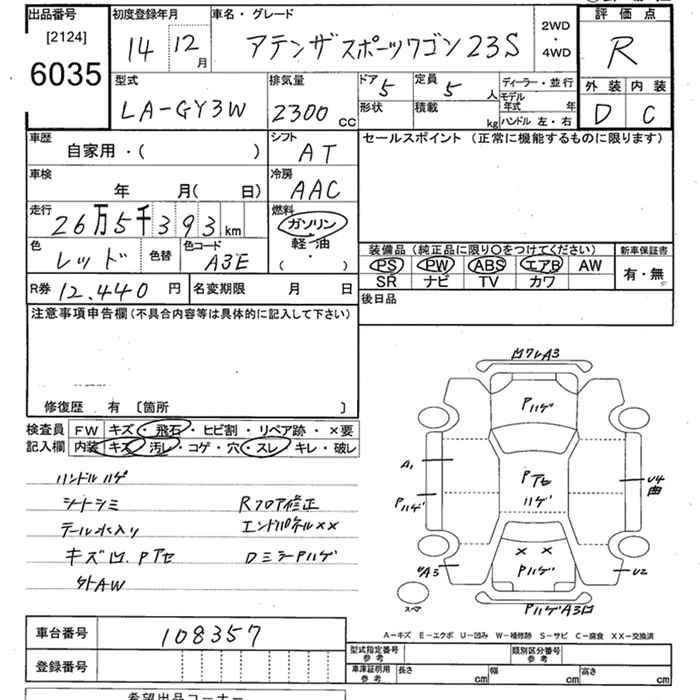 出品番号 初度登録年月 車名・グレード 評価点
[2124]
6035
14 12月 アテンザスポーツワゴン23S 2WD・4WD R
型式 排気量 ドア 定員 ディーラー・並行 外装 内装
LA-GY3W 2300cc 5 5人 モデル年式 年 D C
形状 積載 kg ハンドル 左・右
車歴 シフト セールスポイント(正常に機能するものに限ります)
自家用・( ) AT
車検 冷房
年 月( 日) AAC
走行 燃料
26万5千393km ガソリン・軽油・( )
色 レッド 色替 色コード A3E
装備品(純正品に限り○をつけてください) 新車保証書
PS PW ABS エアB AW 有・無
SR ナビ TV カワ
R券 12,440円 名変期限 月 日 後日品
注意事項申告欄(不具合内容等は具体的に記入して下さい)
修復歴 有 〔箇所 〕
検査員記入欄 FW キズ・飛石・ヒビ割・リペア跡・×要
内装 キズ・汚レ・コゲ・穴・スレ・キレ・破レ
ハンドルハゲ
シートシミ Rフロア修正
テール水入り エンドパネル××
キズ凹.Pアセ DミラーPハゲ
外AW
凹ワレA3
Pハゲ
A1
Pアセ
ハゲ
Pハゲ
U4
凹
××
Pハゲ
UA3
U2
スペア
PハゲA3凹
A-キズ E-エクボ U-凹み W-補修跡 S-サビ C-腐食 XX-交換済
車台番号 108357
型式指定番号 参考 類別区分番号 参考
登録番号 車庫証明用 参考 長さ cm 幅 cm 高さ cm
希望出品コーナー